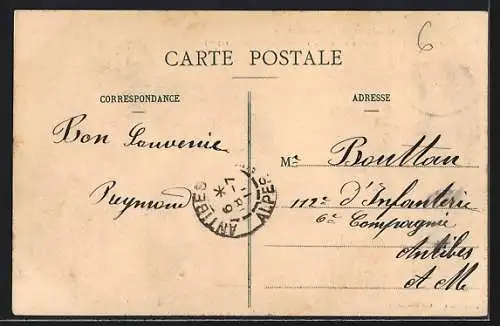 6
CARTE POSTALE
CORRESPONDANCE
ADRESSE
Bon Souvenir
Reymond
Mr Bouttan
112e d'Infanterie
6e Compagnie
Antibes
A M
ANTIBES
ALPES